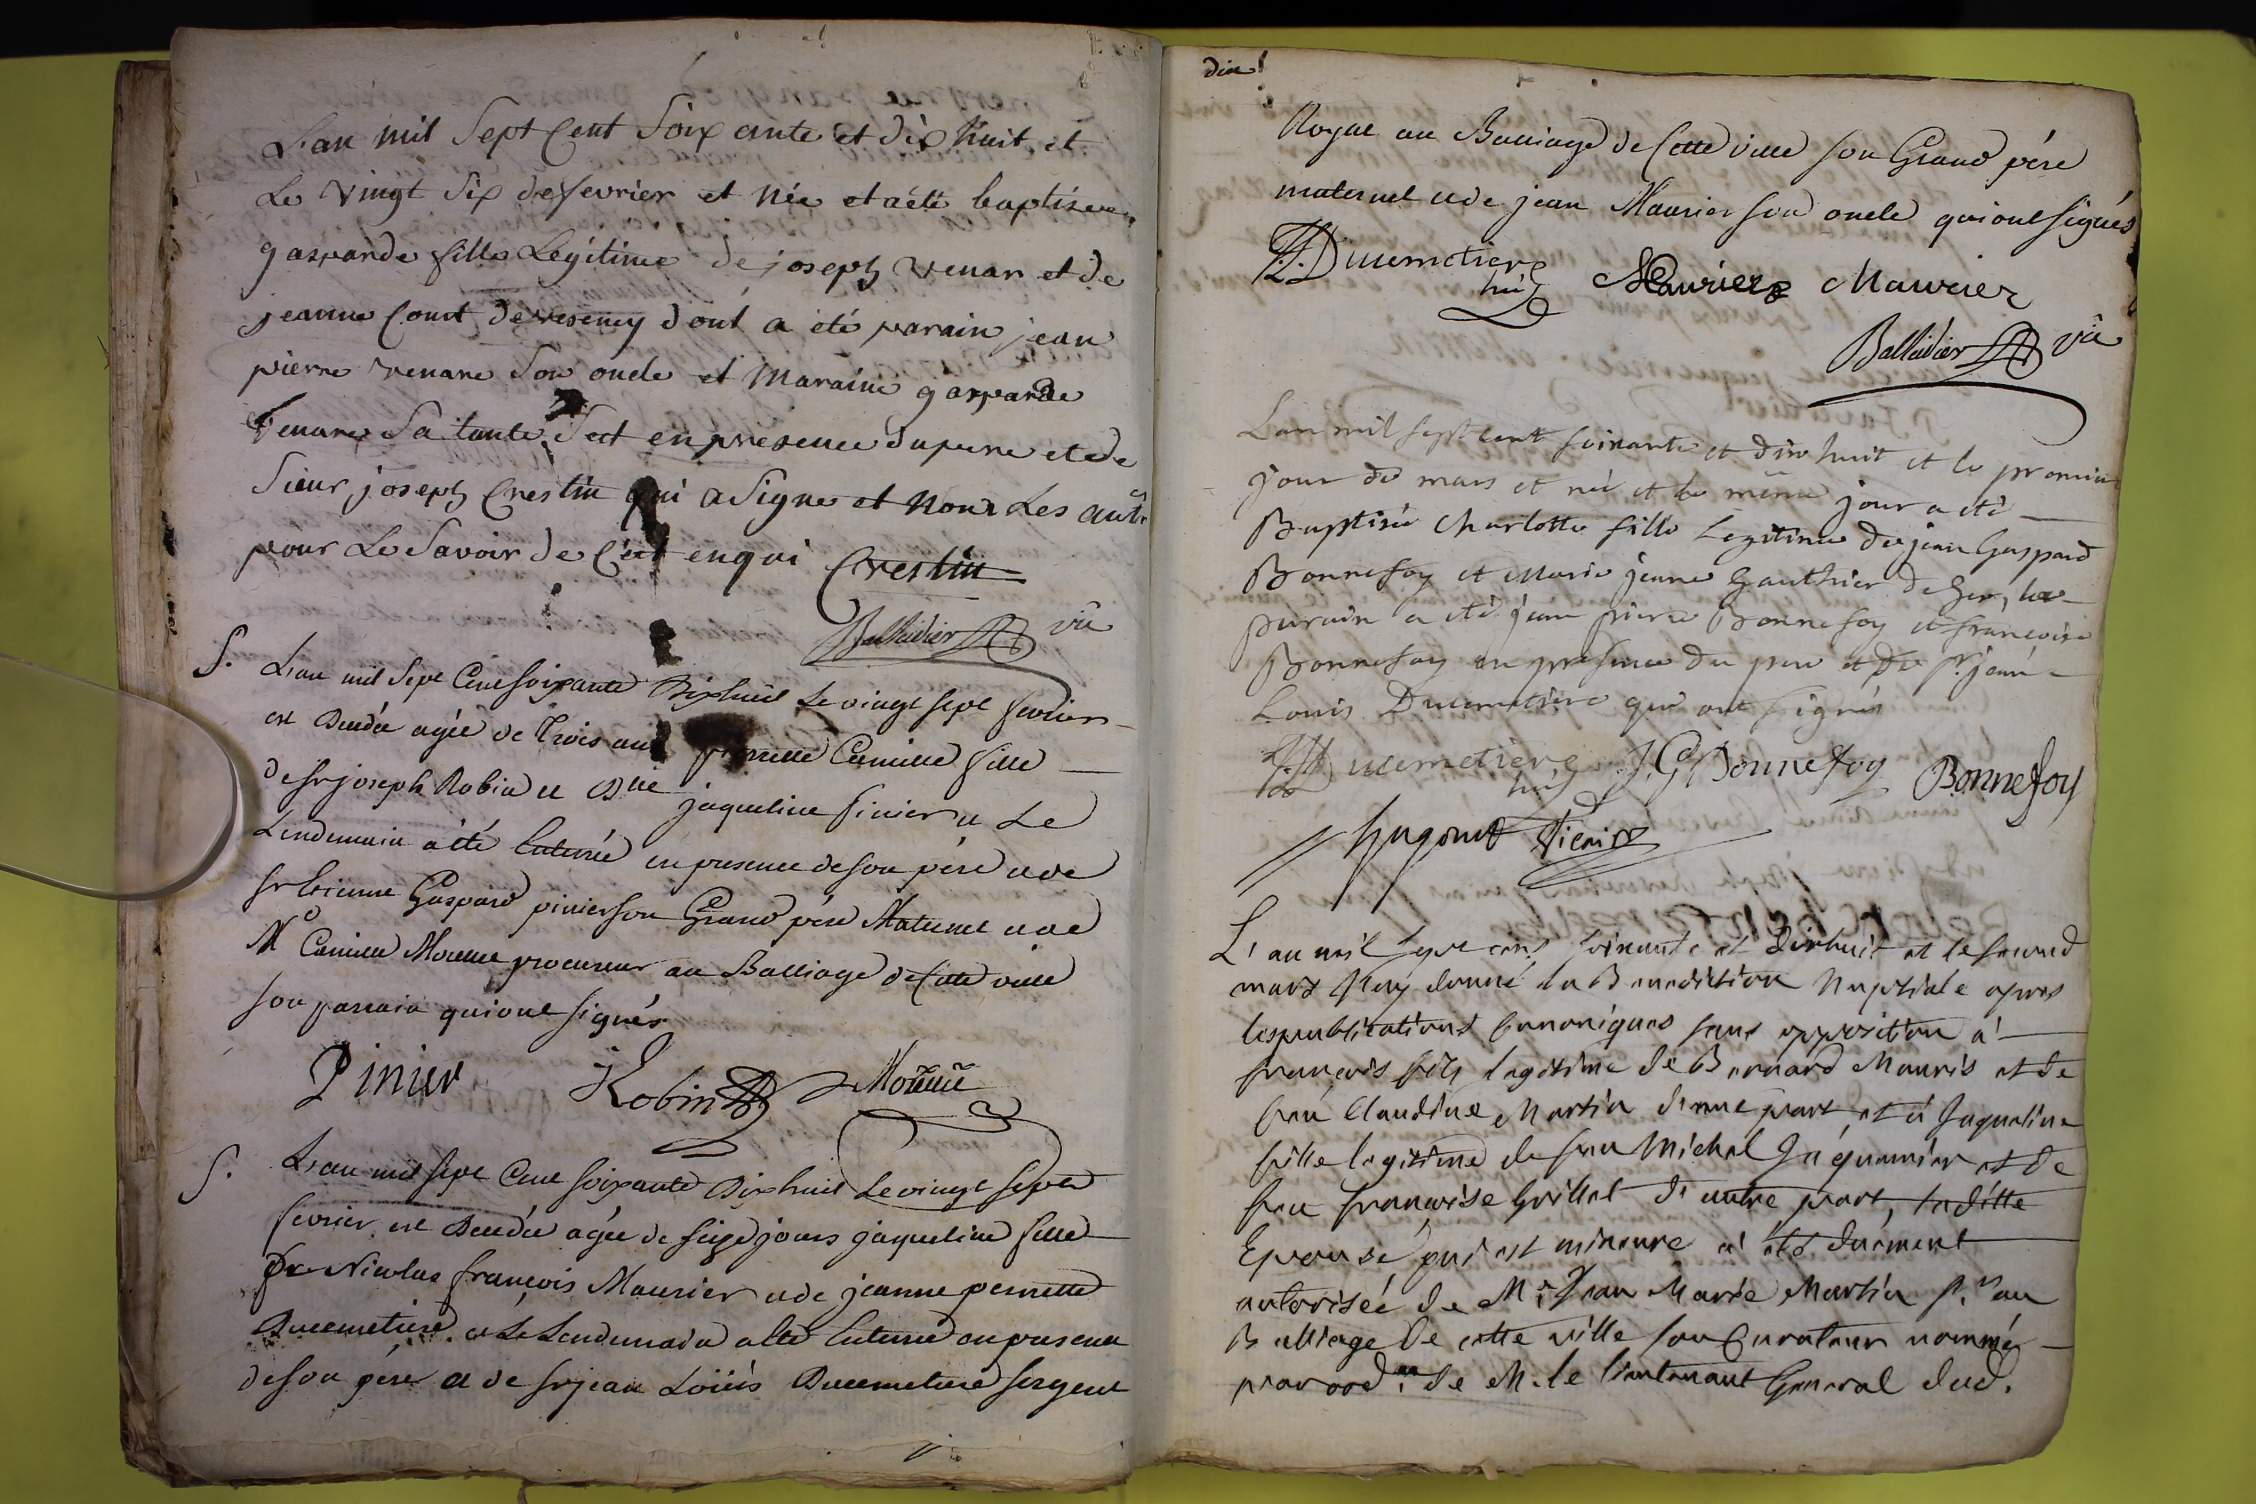 L'an mil Sept Cent Soixante et dix huit et
Le vingt Six de fevrier et née et a été baptisée
gasparde fille Legitime de joseph venare et de
jeanne Court de vesency dont a été parain jean
pierre venare Son oncle et Maraine gasparde
venare Sa tante Sect en presence du pere et de
Sieur joseph Crestin qui a Signe et Non Les autr
pour Le Savoir de Cect enqui Crestin
Balleidier vic
S. L'an mil Sept Cent soixante Dixhuit Le vingt sept fevrier
est Decedée agée de Trois ans pernette Camille fille
de Sr joseph Robin et Dlle jaqueline Pinier et Le
Lendemain a été Enterrée en presence de son père et de
Sr Etienne Gaspard pinier son Grand père Maternel et de
Me Camille Moueue procureur au Balliage de Cette ville
son parrain qui ont signés
Pinier Robin Moueue
S. L'an mil sept Cent soixante Dixhuit Le vingt sept
fevrier est Decedée agée de seize jours jaqueline fille
De Nicolas françois Maurier et de jeanne pernette
Ducemetiere et Le Lendemain a été Enterrée en presence
de son père et de Sr jean Loüis Ducemetiere sergent
dix
Royal au Balliage de Cette ville son Grand père
maternel et de jean Maurier son oncle qui ont signés
JLDucemetiere Maurier Maurier
Balleidier vic
L'an mil sept cent soixante et dix huit et le premier
jour de mars et née et le même jour a été
Baptisée Charlotte fille Legitime de jean Gaspard
Bonnefoy et Marie jeanne Gauthier de Gex, le
parain a été jean pierre Bonnefoy et françoise
Bonnefoy en presence du pere et de Sr jean
Louis Ducemetiere qui ont signés
JLDucemetiere J. G. Bonnefoy Bonnefoy
hugonet vicaire
L'an mil sept cent soixante et dixhuit et le second
mars j'ay donné la Benediction Nuptiale apres
les publications Canoniques sans opposition à
françois fils legitime de Bernard Mauris et de
feu Claudine Martin d'une part et à Jaqueline
fille legitime de feu Michel Jaquemier et de
feu françoise Grillet d'autre part, laditte
Epouse qui est mineure a été duement
autorisée de Me. Jean Marie Martin pr. au
Balliage de cette ville son Curateur nommé
par ord.ce de M. le lieutenant General dud.